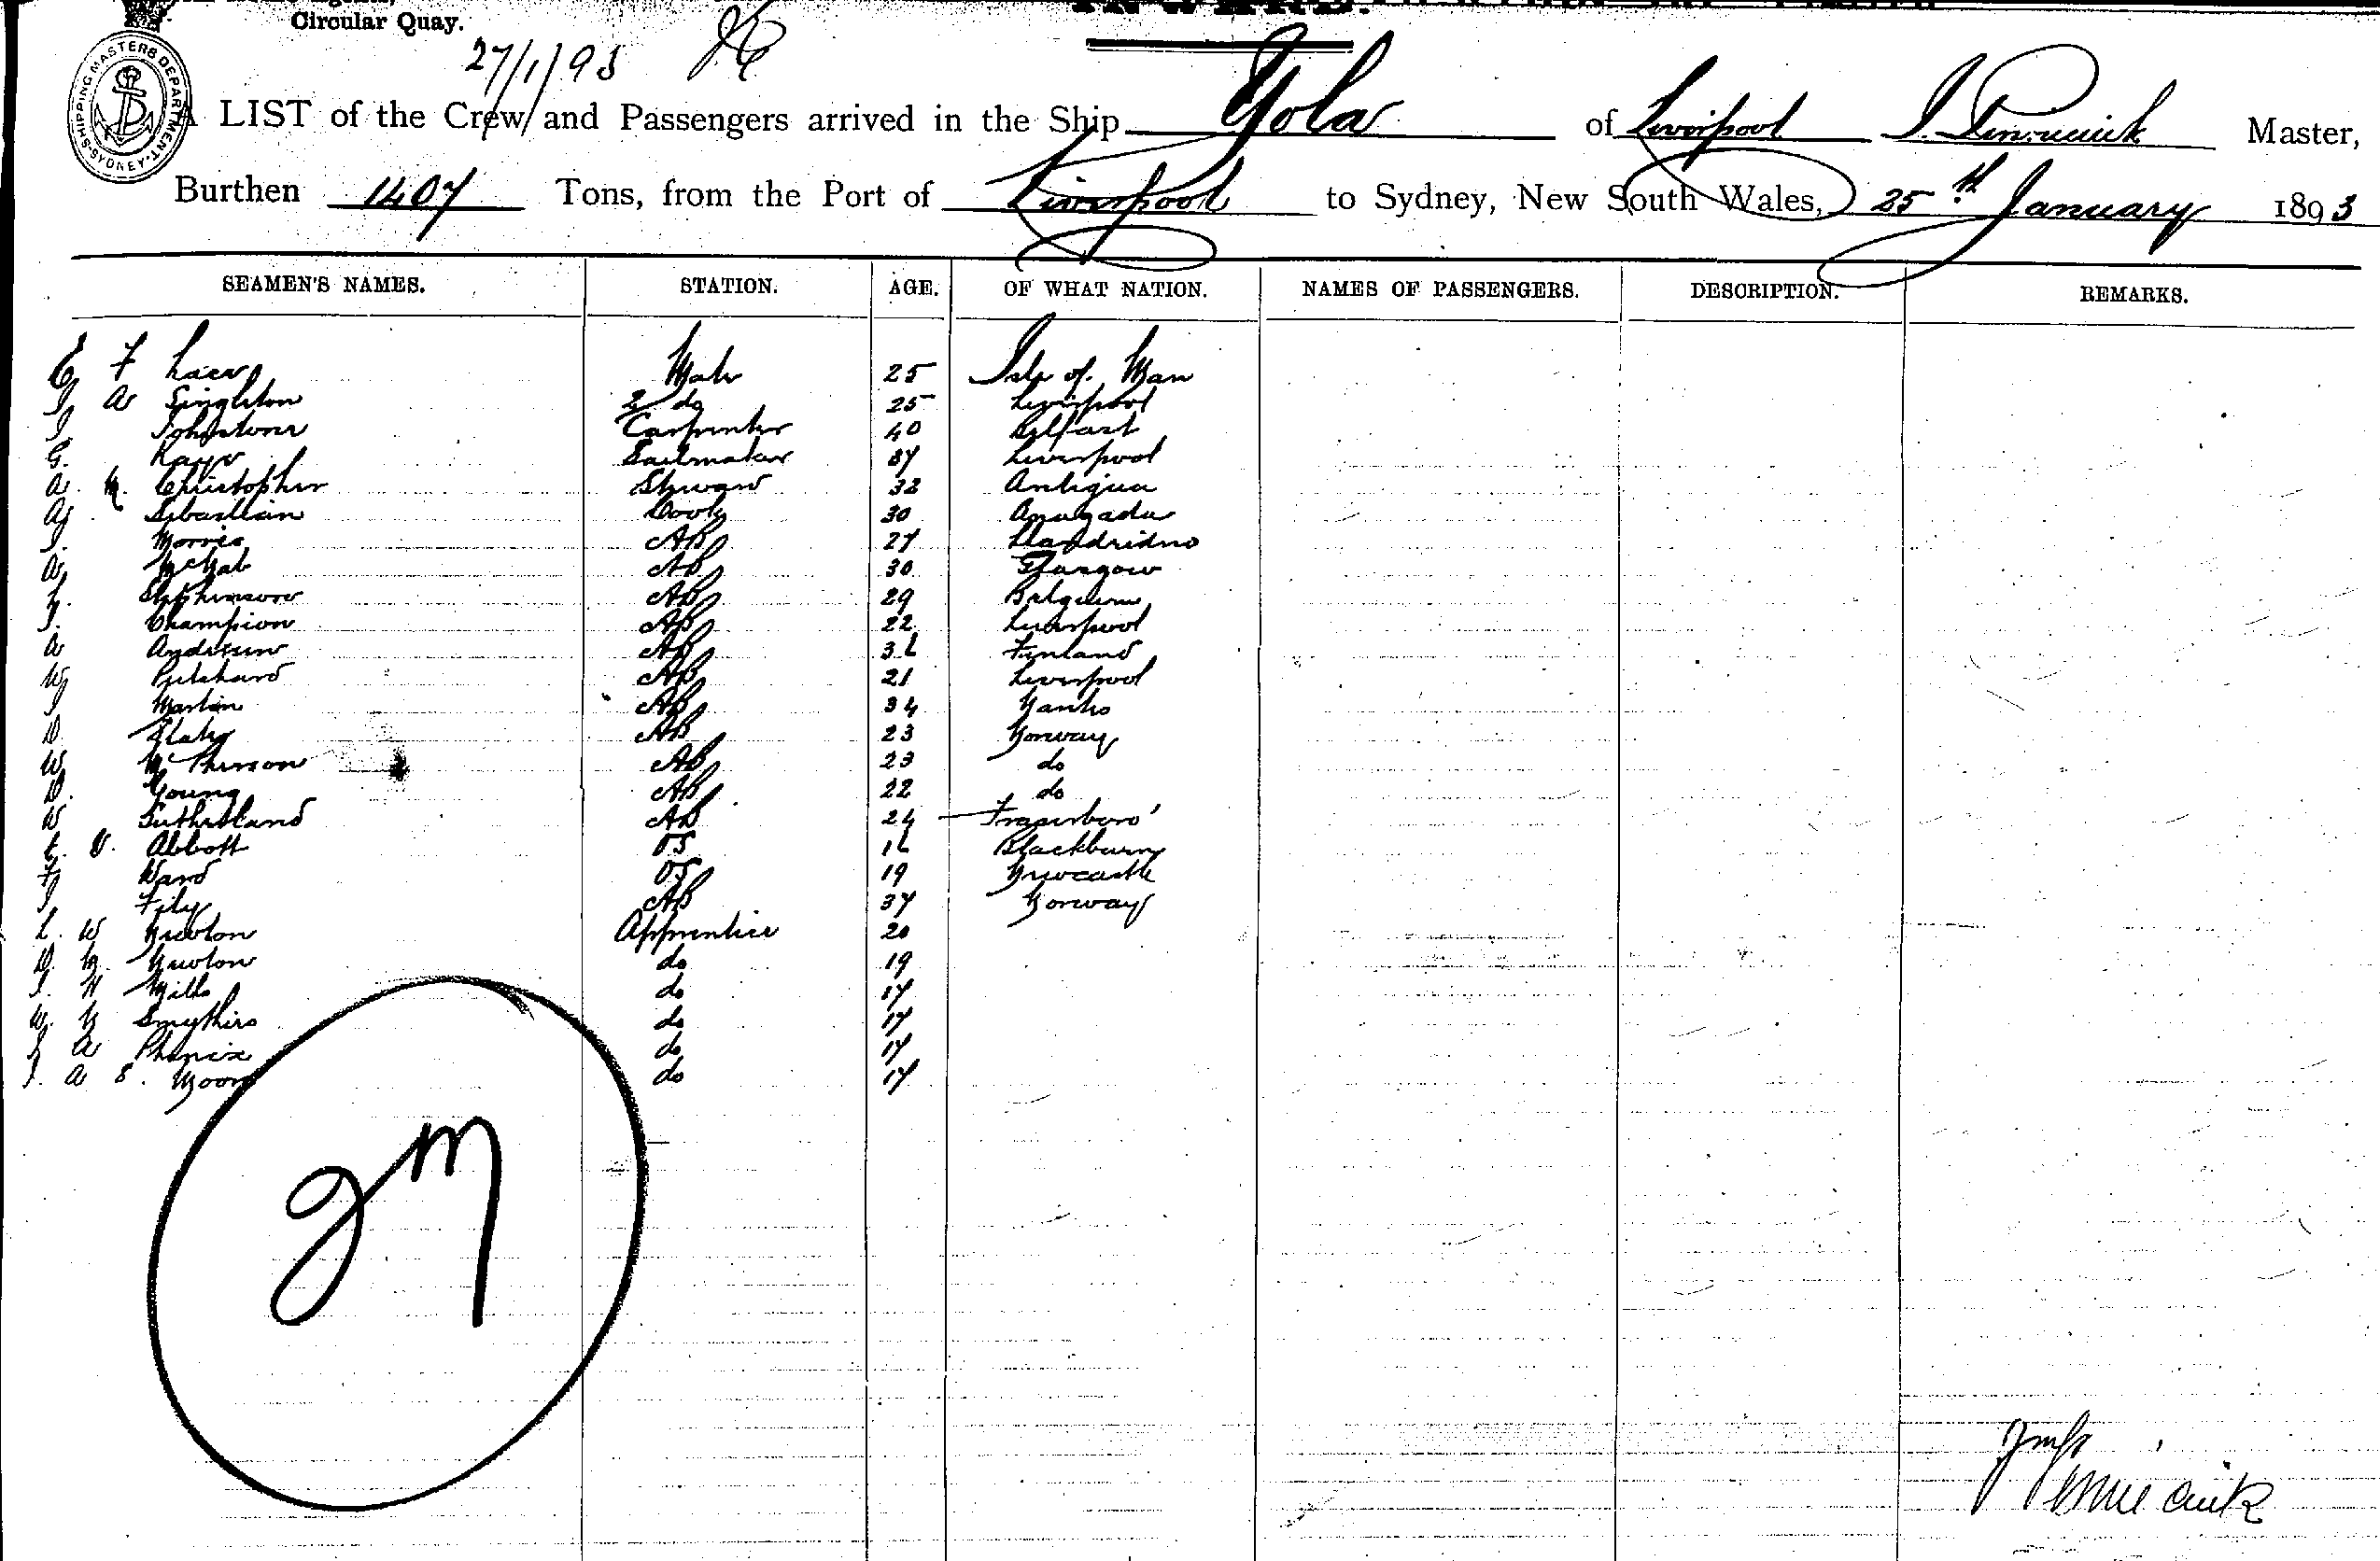 Circular Quay.
27/1/93
SHIPPING MASTERS DEPARTMENT. SYDNEY.
A LIST of the Crew and Passengers arrived in the Ship Yola of Liverpool J. Master,
Burthen 1407 Tons, from the Port of Liverpool to Sydney, New South Wales, 25th January 1893
SEAMEN'S NAMES. STATION. AGE. OF WHAT NATION. NAMES OF PASSENGERS. DESCRIPTION. REMARKS.
F Mate 25 Isle of Man
J A Singleton 2 do 25 Liverpool
J. Johnstone Carpenter 40 Belfast
G. Kaye Sailmaker 37 Liverpool
A. M. Christopher Steward 32 Antigua
A. Sebastian Cook 30 Anagada
J. Morris AB 27 Llandridno
A. McNab AB 30 Glasgow
Stephenson AB 29 Belgium
J. Champion AB 22 Liverpool
A Andersen AB 36 Finland
W Pritchard AB 21 Liverpool
J Martin AB 34
D. AB 23 Norway
W McPherson AB 23 do
D. Young AB 22 do
W Sutherland AB 24 Fraserboro'
E. V. Abbott OS 16 Blackburn
F Ward OS 19 Newcastle
J AB 37 Norway
L. W Newton Apprentice 20
D. M. Newton do 19
J. H Mills do 17
W. H Smythies do 17
J A Phenix do 17
J. A E. Moon do 17